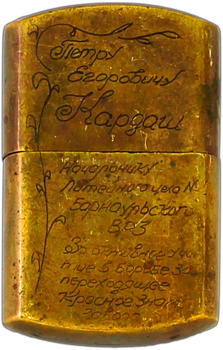 Петру
Егоровичу
Кардаш
Начальнику
Литейного цеха №
Барнаульского
ВРЗ
За отличные
в Борьбе За
переходящее
Красное Знамя
завода